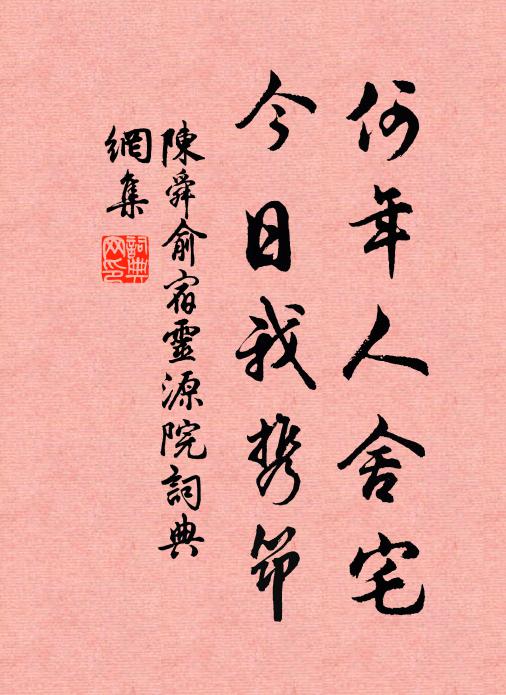 何年人舍宅
今日我携笻
陳舜俞宿靈源院詞典
網集
詞典
网印